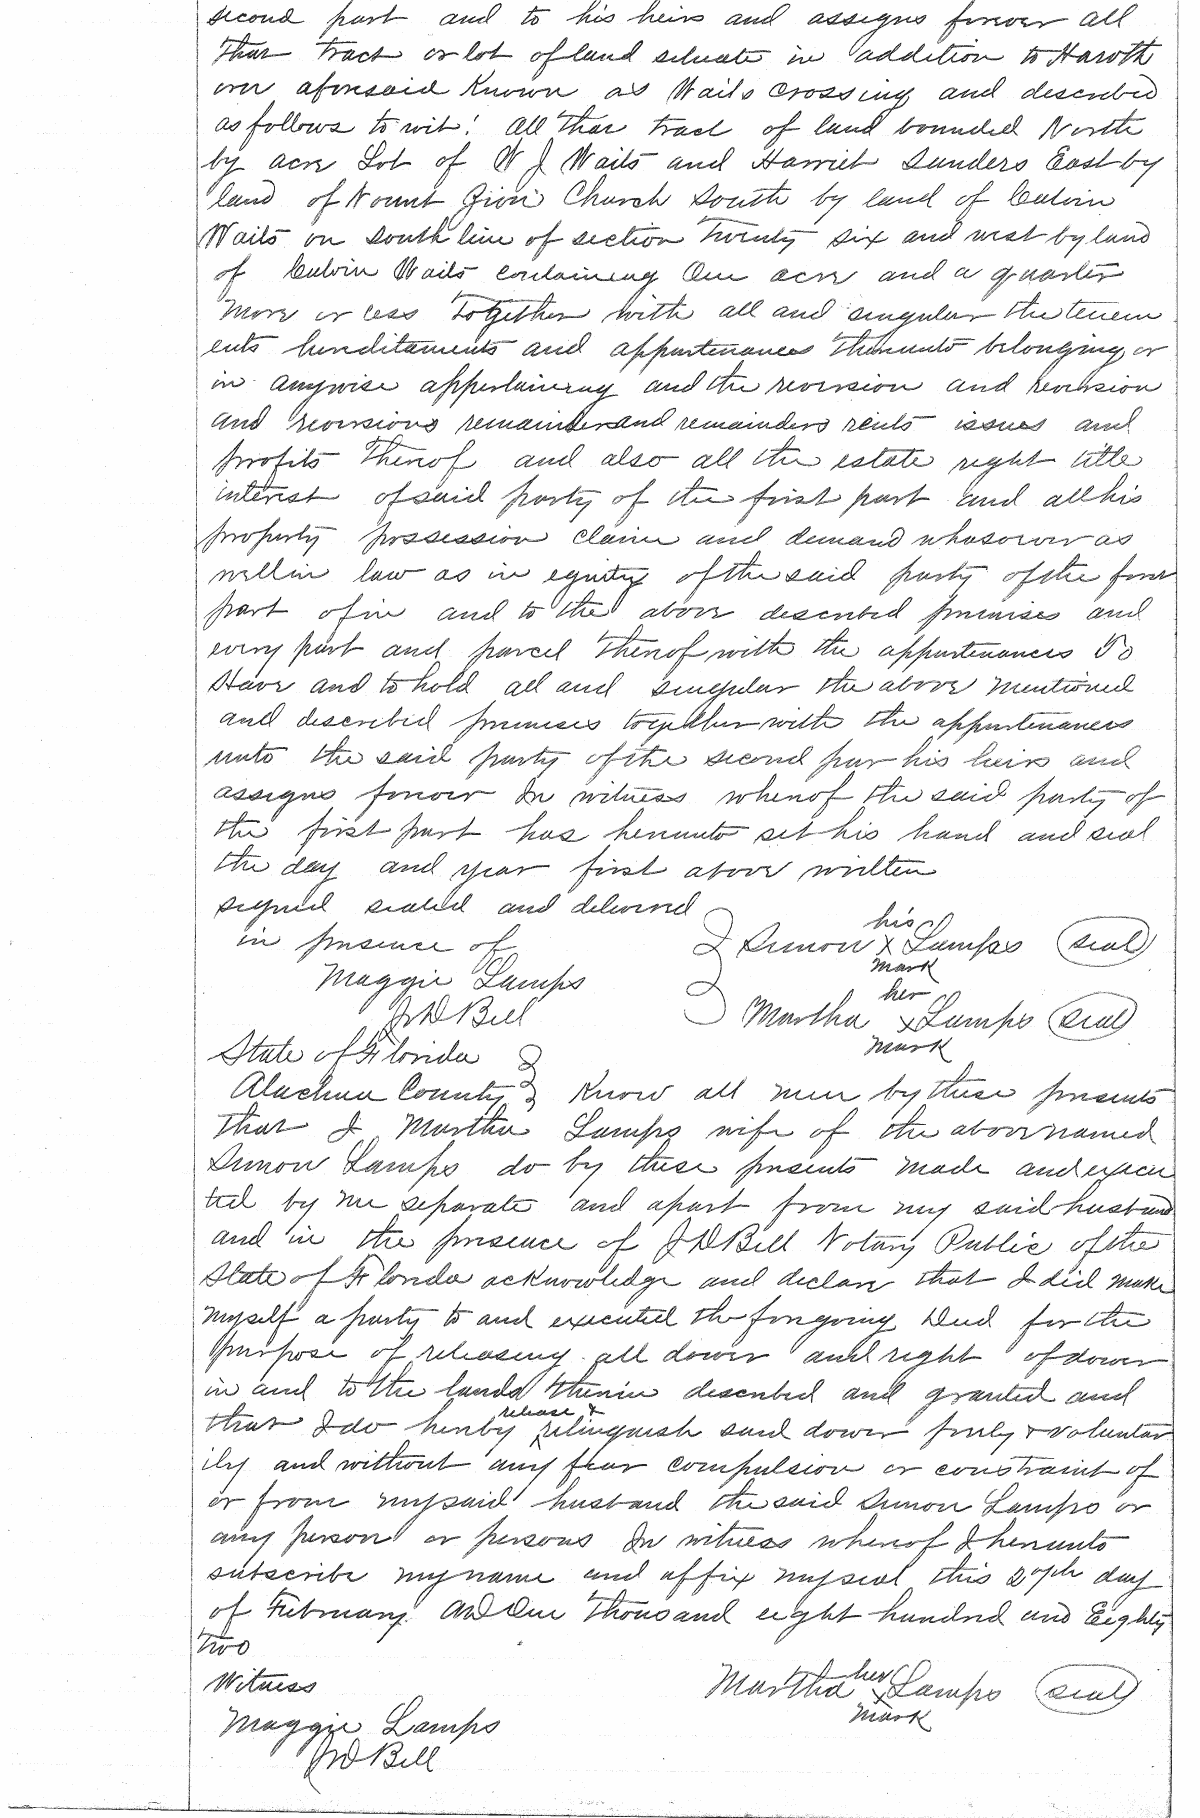 second part and to his heirs and assigns forever all
that tract or lot of land situate in addition to Hawth
orn aforesaid Known as Waits Crossing and described
as follows to wit: All that tract of land bounded North
by acre Lot of W J Waits and Harriet Sanders East by
land of Mount Zion Church South by land of Calvin
Waits on South line of section Twenty six and west by land
of Calvin Waits containing One acre and a quarter
more or less Together with all and singular the tenem
ents hereditaments and appurtenances thereunto belonging or
in anywise appertaining and the reversion and reversion
and reversions remainder and remainders rents issues and
profits thereof and also all the estate right title
interest of said party of the first part and all his
property possession claim and demand whatsoever as
well in law as in equity of the said party of the first
part of in and to the above described premises and
every part and parcel thereof with the appurtenances To
Have and to hold all and singular the above mentioned
and described premises together with the appurtenances
unto the said party of the second par his heirs and
assigns forever In witness whereof the said party of
the first part has hereunto set his hand and seal
the day and year first above written
signed sealed and delivered
in presence of
Maggie Lamps
J D Bell
his
Simon x Lamps (seal)
mark
her
Martha x Lamps (seal)
mark
State of Florida
Alachua County Know all men by these presents
that I Martha Lamps wife of the above named
Simon Lamps do by these presents made and execu
ted by me separate and apart from my said husband
and in the presence of J D Bell Notary Public of the
State of Florida acknowledge and declare that I did make
myself a party to and executed the foregoing Deed for the
purpose of releasing all dower and right of dower
in and to the lands therein described and granted and
that I do hereby release & relinquish said dower freely & voluntar
ily and without any fear compulsion or constraint of
or from my said husband the said Simon Lamps or
any person or persons In witness whereof I hereunto
subscribe my name and affix my seal this 27th day
of February AD One Thousand eight hundred and Eighty
two
Witness
Maggie Lamps
J D Bell
her
Martha x Lamps (seal)
mark